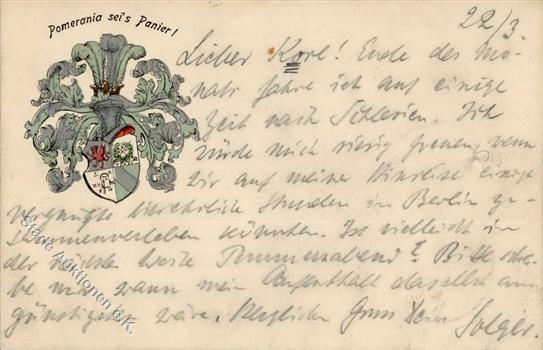 Pomerania sei's Panier!
22/3.
Lieber Karl! Ende des Mo-
nats fahre ich auf einige
Zeit nach Schlesien. Ich
würde mich riesig freuen, wenn
wir auf meiner Hinreise einige
vergnügte bierehrliche Stunden in Berlin zu-
sammenverleben könnten. Ist vielleicht in
der nächsten Woche Pommernabend? Bitte schrei-
be mir wann mein Aufenthalt daselbst am
günstigsten wäre. Herzlichen Gruss Dein Solger.
Städte Auktionen e.K.